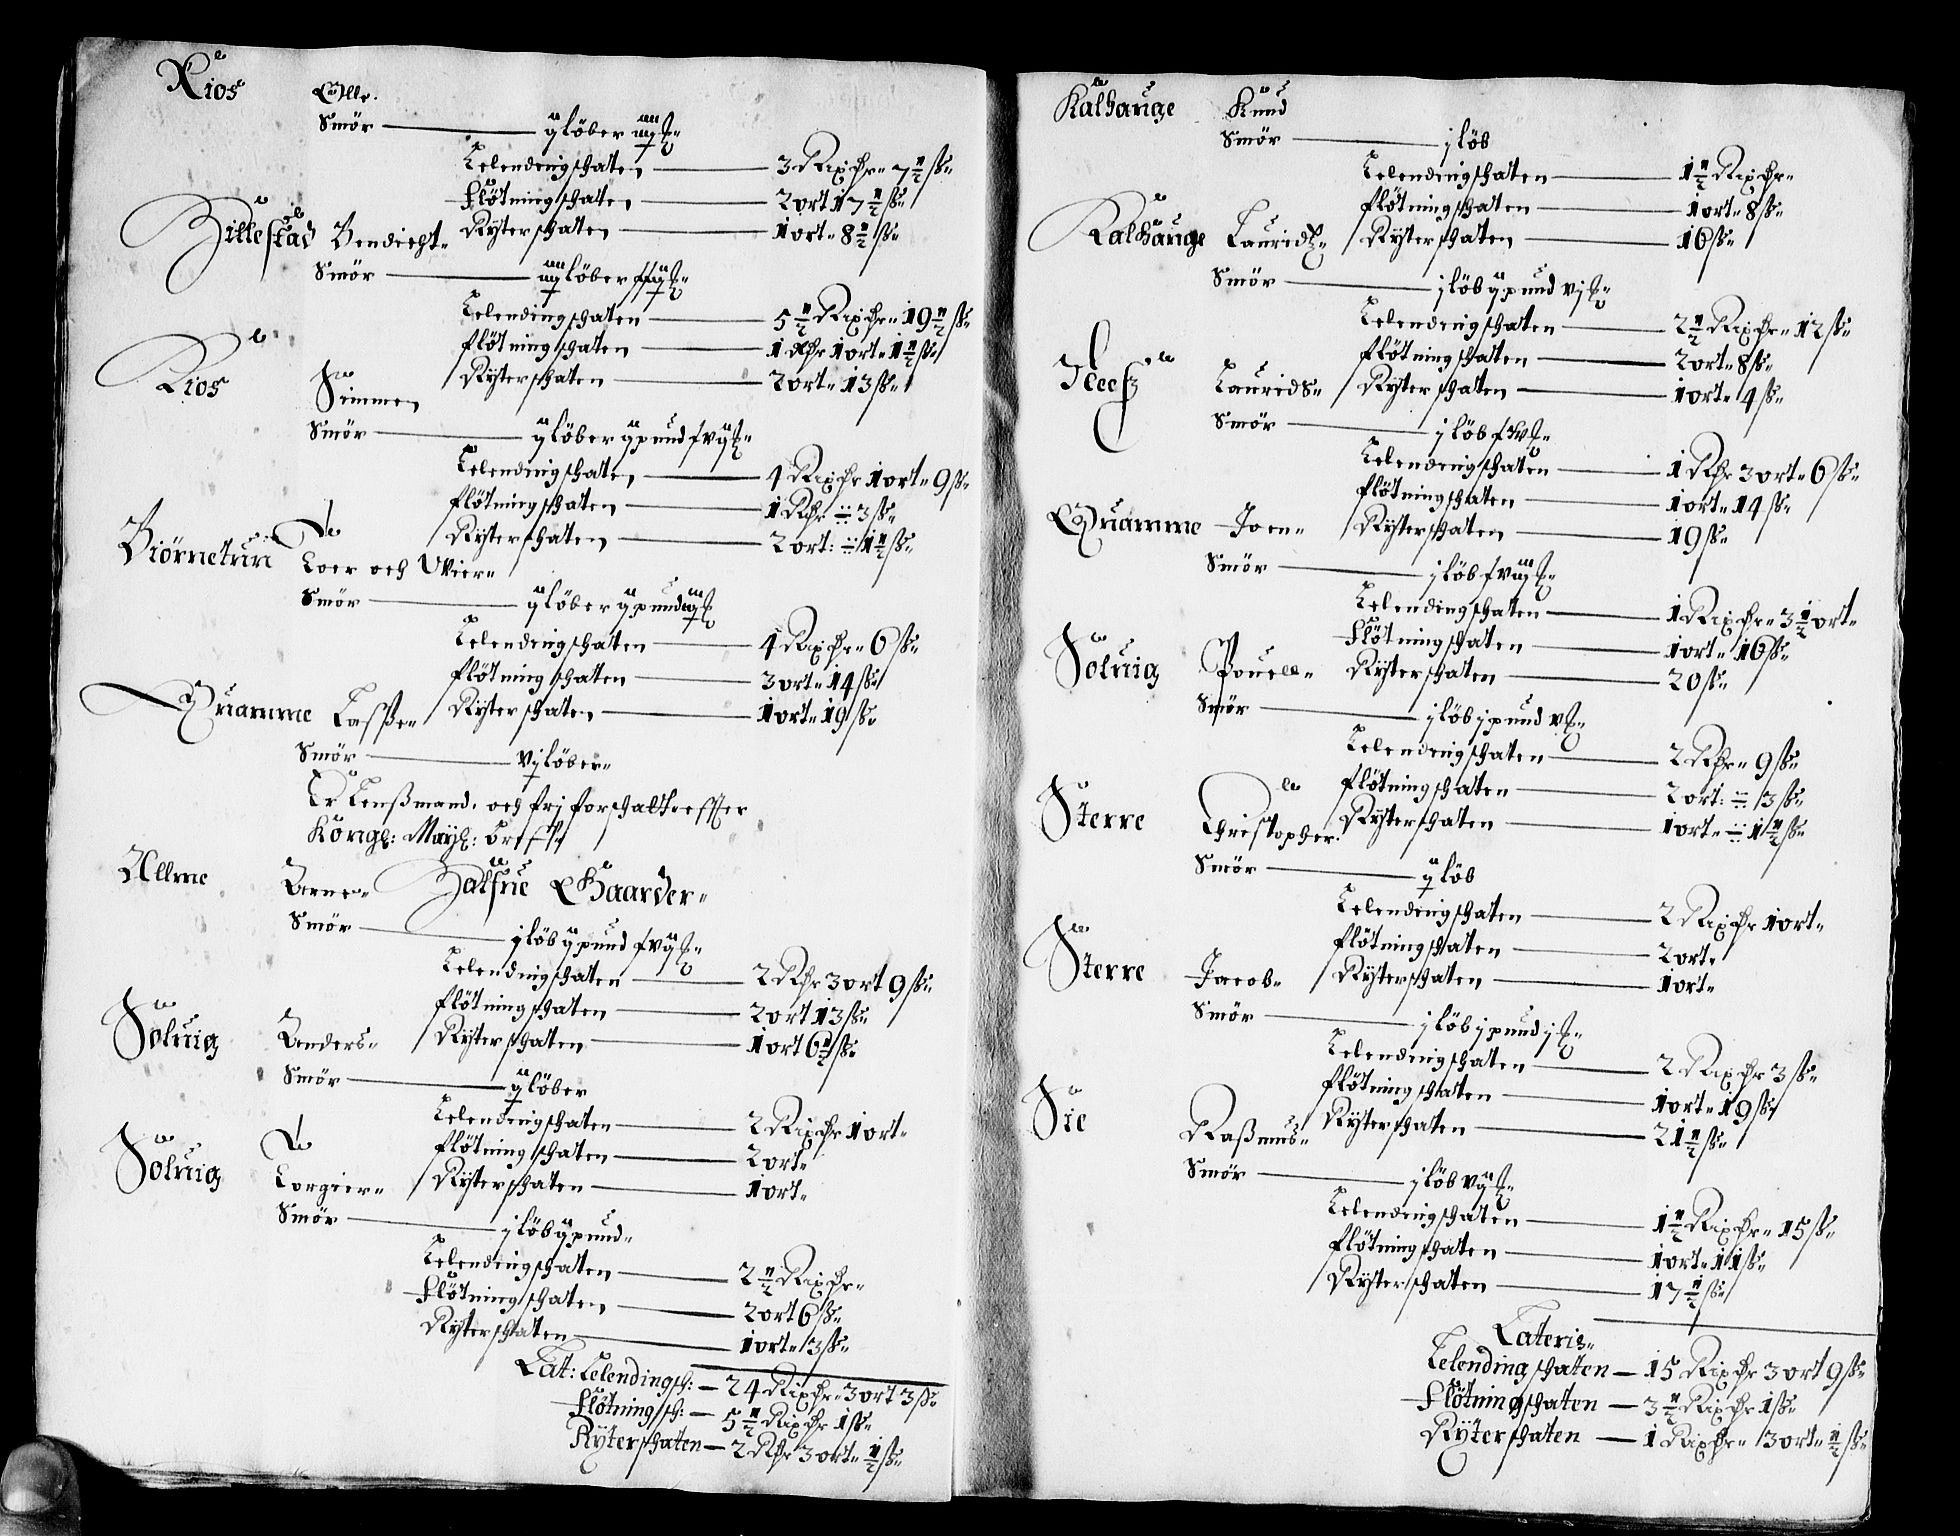 Rios Olle.
Smör — ij löber iiij ℔
Lelendingschaten — 3 Rixdr 7½ ß
Flötningschaten — 2 ort 17½ ß
Ryterschaten — 1 ort 8½ ß
Hillestad Bendicht
Smör — iiij löber
Lelendingschaten — 5½ Rixdr 19½ ß
flötningschaten — 1 Rdr 1 ort 1½ ß
Ryterschaten — 2 ort 13 ß
Rios Simmen
Smör — ij löber ij pund xvij ℔
Lelendingschaten — 4 Rixdr 1 ort 9 ß
flötningschaten — 1 Rdr 3 ß
Ryterschaten — 2 ort: 1½ ß
Biörnetun Loer och Wier
Smör — ij löber ij pund iiij ℔
Lelendingschaten — 4 Rixdr 6 ß
flötningschaten — 3 ort 14 ß
Ryterschaten — 1 ort 19 ß
Quamme Lasße
Smör — vj löber
Er Lenßmand. och frj for schalt effter
Kongl: Mayl: breff
Allme Arne Halfue Gaarder
Smör — j löb ij pund xvij ℔
Lelendingschaten — 2 Rdr 3 ort 9 ß
flötningschaten — 2 ort 13 ß
Ryterschaten — 1 ort 6½ ß
Soluig Anders
Smör — ij löber
Lelendingschaten — 2 Rixdr 1 ort
flötningschaten — 2 ort
Ryterschaten — 1 ort
Soluig Torgier
Smör — j löb ij pund
Lelendingschaten — 2½ Rixdr
Flötningschaten — 2 ort 6 ß
Ryterschaten — 1 ort 3 ß
Lat: Lelendingsch: — 24 Rixdr 3 ort 3 ß
Flötningsch: — 5½ Rixdr 1 ß
Ryterschaten — 2 Rdr 3 ort ½ ß
Kalhauge Knud
Smör — j löb
Lelendingschaten — 1½ Rixdr
flötningschaten — 1 ort 8 ß
Ryterschaten — 16 ß
Kalhauge Lauridtz
Smör — j löb ij pund vj ℔
Lelendingschaten — 2½ Rixdr 12 ß
flötningschaten — 2 ort 8 ß
Ryterschaten — 1 ort 4 ß
Laurids
Smör — j löb xv ℔
Lelendingschaten — 1 Rdr 3 ort 6 ß
flötningschaten — 1 ort 14 ß
Ryterschaten — 19 ß
Quamme Joen
Smör — j löb xviij ℔
Lelendingschaten — 1 Rixdr 3½ ort
Flötningschaten — 1 ort 16 ß
Ryterschaten — 20 ß
Soluig Pouell
Smör — j löb j pund v ℔
Lelendingschaten — 2 Rdr 9 ß
flötningschaten — 2 ort: 3 ß
Ryterschaten — 1 ort 1½ ß
Sterre Christopher.
Smör — ij löb
Lelendingschaten — 2 Rixdr 1 ort
flötningschaten — 2 ort
Ryterschaten — 1 ort
Sterre Jacob
Smör — j löb j pund j ℔
Lelendingschaten — 2 Rixdr 3 ß
flötningschaten — 1 ort 19 ß
Ryterschaten — 21½ ß
Sie Raßmus
Smör — j löb vij ℔
Lelendingschaten — 1½ Rixdr 15 ß
flötningschaten — 1 ort 11 ß
Ryterschaten — 17½ ß
Lateris
Lelendingschaten — 15 Rixdr 3 ort 9 ß
Flötningschaten — 3½ Rixdr 1 ß
Ryterschaten — 1 Rixdr 3 ort ½ ß